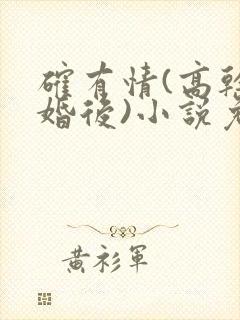 確有情(高幹
婚後)小說
黃衫軍